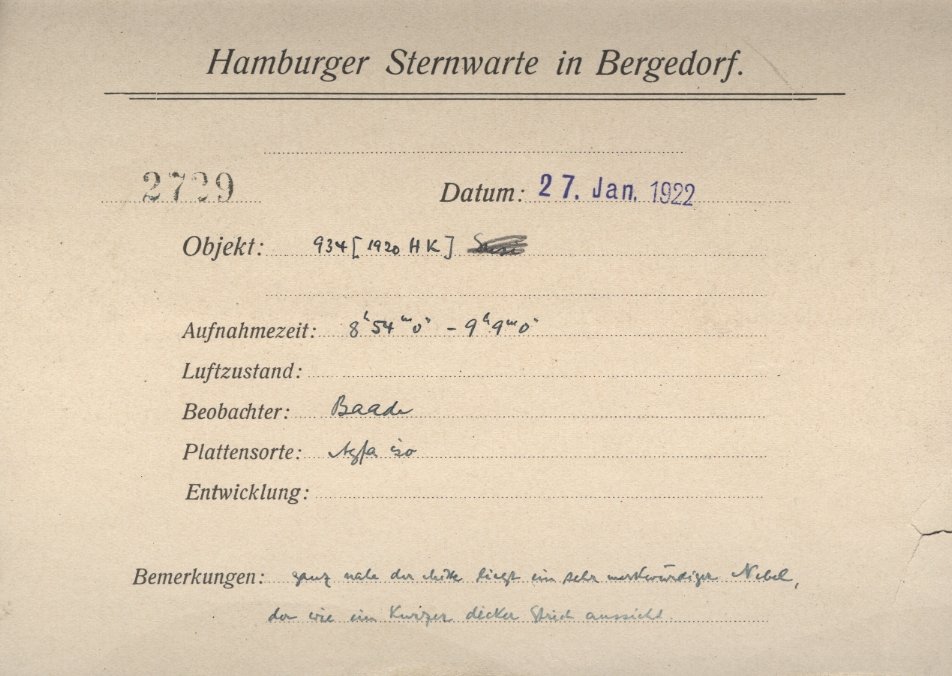 Hamburger Sternwarte in Bergedorf.
2729
Datum: 27. Jan. 1922
Objekt: 934 [1920 HK]
Aufnahmezeit: 8ʰ54ᵐ0ˢ - 9ʰ9ᵐ0ˢ
Luftzustand:
Beobachter: Baade
Plattensorte: Agfa iso
Entwicklung:
Bemerkungen: ganz nahe der Mitte liegt ein sehr merkwürdiger Nebel,
der wie ein kurzer dicker Strich aussieht